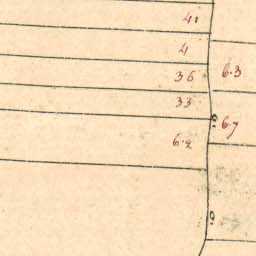 41
4
36
6.3
33
67
6.2